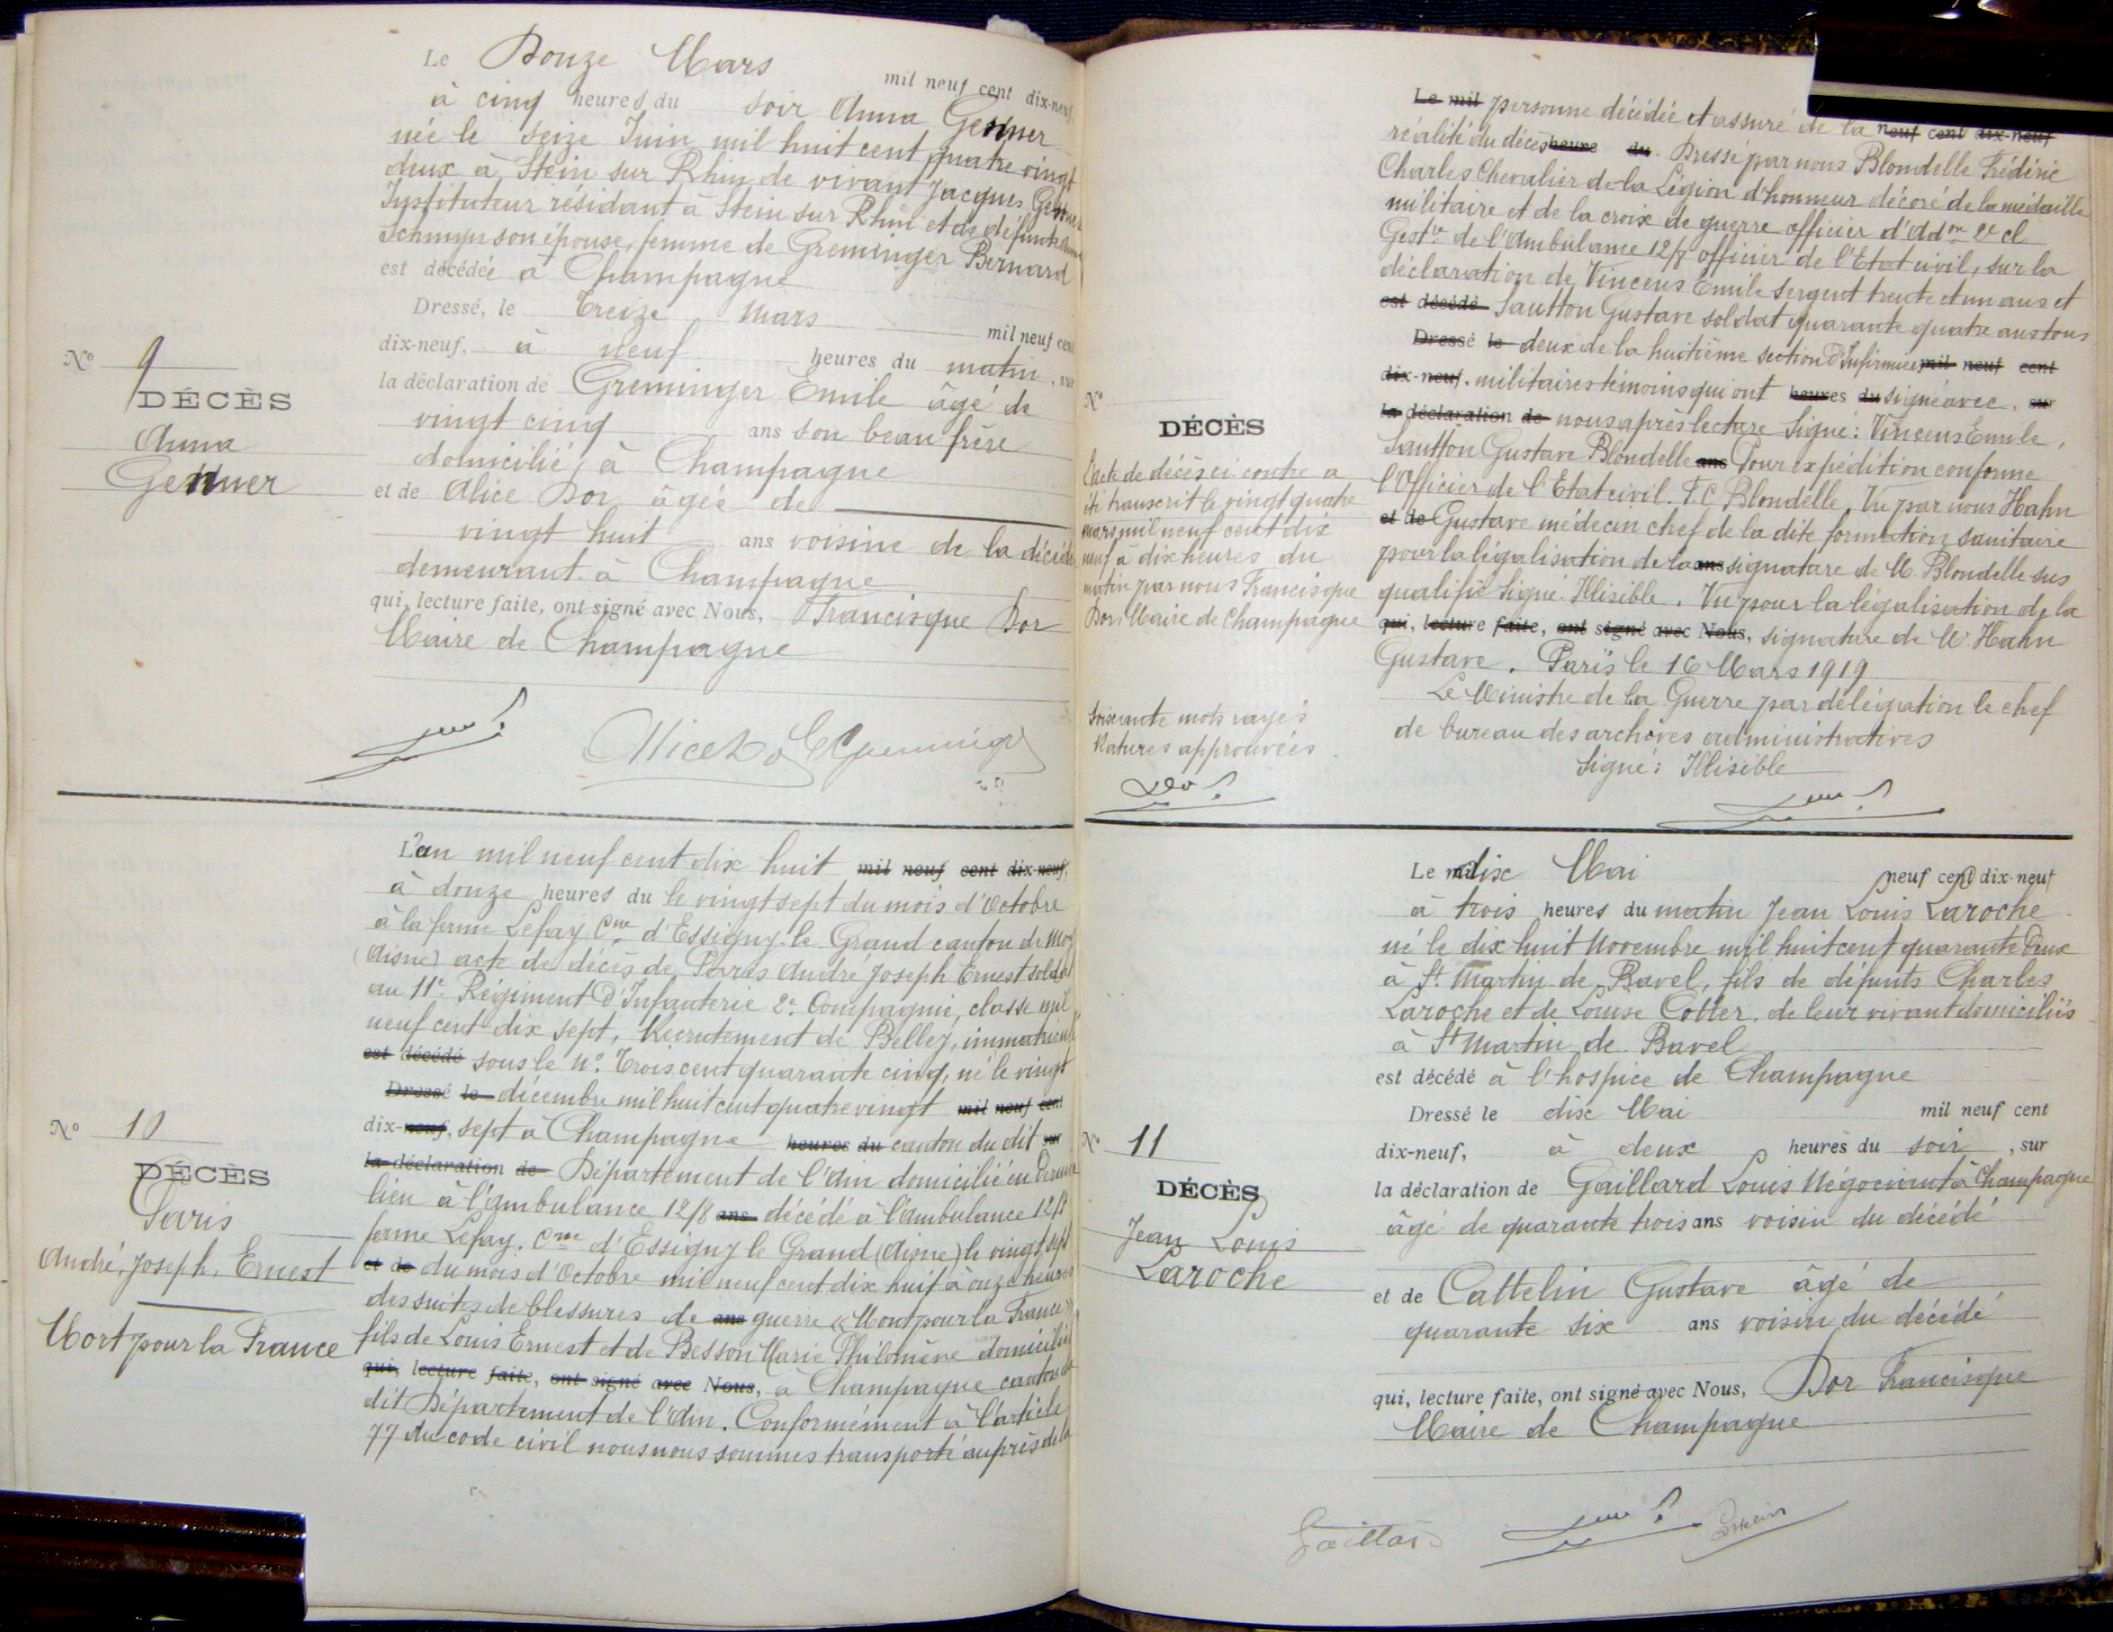 Le Douze Mars mil neuf cent dix-neuf
à cinq heures du soir Anna Gesner
née le seize Juin mil huit cent quatre vingt
deux à Stein sur Rhin de vivant Jacques
Instituteur résidant à Stein sur Rhin et de défunte
son épouse, femme de Greminger Bernard
est décédée à Champagne
Dressé, le Treize Mars mil neuf cent
dix-neuf, à neuf heures du matin, sur
la déclaration de Greminger Emile âgé de
vingt cinq ans son beau frère
domicilié à Champagne
et de Alice Dor âgée de
vingt huit ans voisine de la
demeurant à Champagne
qui, lecture faite, ont signé avec Nous, Francisque Dor
Maire de Champagne
No 9
DÉCÈS
Anna
Gesner
L'an mil neuf cent dix huit mil neuf cent dix-neuf,
à douze heures du le vingt sept du mois d'Octobre
à la ferme Lefay Cne d'Essigny le Grand canton de Moÿ
(Aisne) acte de décès de Parris André Joseph Ernest soldat
au 11e Régiment d'Infanterie 2e Compagnie, classe mil
neuf cent dix sept, Recrutement de Belley, immatriculé
est décédé sous le No Trois cent quarante cinq, né le vingt
Dressé le décembre mil huit cent quatre vingt mil neuf cent
dix-neuf, sept à Champagne heures du canton du dit sur
la déclaration de Département de l'Ain domicilié en dernier
lieu à l'ambulance 12/8 ans décédé à l'ambulance 12/8
ferme Lefay. Cne d'Essigny le Grand (Aisne) le vingt sept
et de du mois d'Octobre mil neuf cent dix huit à onze heures
des suites de blessures de ans guerre « Mort pour la France »
fils de Louis Ernest et de Besson Marie Philomène domiciliés
qui, lecture faite, ont signé avec Nous, à Champagne canton du
dit Département de l'Ain. Conformément à l'article
77 du code civil nous nous sommes transporté auprès de la
No 10
DÉCÈS
Paris
André, Joseph, Ernest
Mort pour la France
Le mil personne décédée et assuré de la neuf cent dix-neuf
réalité du décès heure du. Dressé par nous Blondelle Frédéric
Charles Chevalier de la Légion d'honneur décoré de la médaille
militaire et de la croix de guerre officier d'Adon 2e cl
Gestre de l'Ambulance 12/8 officier de l'Etat civil, sur la
déclaration de Vincens Emile sergent trente et un ans et
est décédé Sautton Gustave soldat quarante quatre ans tous
Dressé le deux de la huitième section d'Infirmiers mil neuf cent
dix-neuf, militaires témoins qui ont heures du signé avec, sur
la déclaration de nous après lecture Signé: Vincens Emile,
Sautton Gustave Blondelle ans Pour expédition conforme
l'Officier de l'Etat civil. F. C Blondelle. Vu par nous Hahn
et de Gustave médecin chef de la dite formation sanitaire
pour la légalisation de la ans signature de M. Blondelle sus
qualifié Signé Illisible. Vu pour la légalisation de la
qui, lecture faite, ont signé avec Nous, signature de M. Hahn
Gustave. Paris le 16 Mars 1919
Le Ministre de la Guerre par délégation le chef
de bureau des archives administratives
Signé: Illisible
No
DÉCÈS
L'acte de décès ci contre a
été transcrit le vingt quatre
mars mil neuf cent dix
neuf à dix heures du
matin par nous Francisque
Dor, Maire de Champagne
Soixante mots rayés
Ratures approuvées
Le mil dix Mai neuf cent dix-neuf
à trois heures du matin Jean Louis Laroche
né le dix huit Novembre mil huit cent quarante deux
à St Martin de Bavel, fils de défunts Charles
Laroche et de Louise Cotter, de leur vivant domiciliés
à St Martin de Bavel
est décédé à l'hospice de Champagne
Dressé le dix Mai mil neuf cent
dix-neuf, à deux heures du soir, sur
la déclaration de Gaillard Louis Négociant à Champagne
âgé de quarante trois ans voisin du décédé
et de Cattelin Gustave âgé de
quarante six ans voisin du décédé
qui, lecture faite, ont signé avec Nous, Dor Francisque
Maire de Champagne
No 11
DÉCÈS
Jean Louis
Laroche
Gaillard